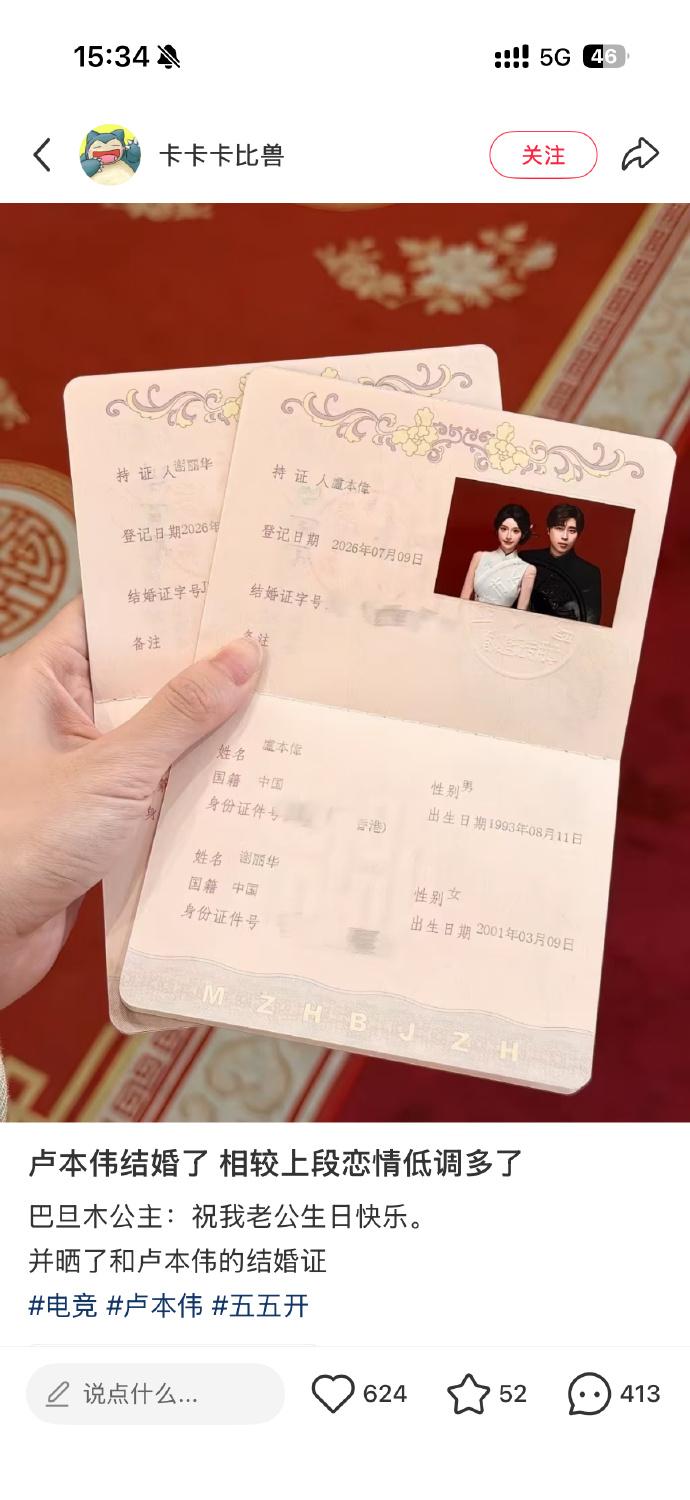 15:34
5G
46
卡卡卡比兽
关注
持证人谢丽华
登记日期2026年
结婚证字号J
备注
持证人盧本偉
登记日期 2026年07月09日
结婚证字号
备注
姓名 盧本偉
国籍 中国
性别男
身份证件号
香港)
出生日期1993年08月11日
姓名 谢丽华
国籍 中国
性别女
身份证件号
出生日期2001年03月09日
M Z H B J Z H
卢本伟结婚了 相较上段恋情低调多了
巴旦木公主：祝我老公生日快乐。
并晒了和卢本伟的结婚证
#电竞 #卢本伟 #五五开
说点什么...
624
52
413